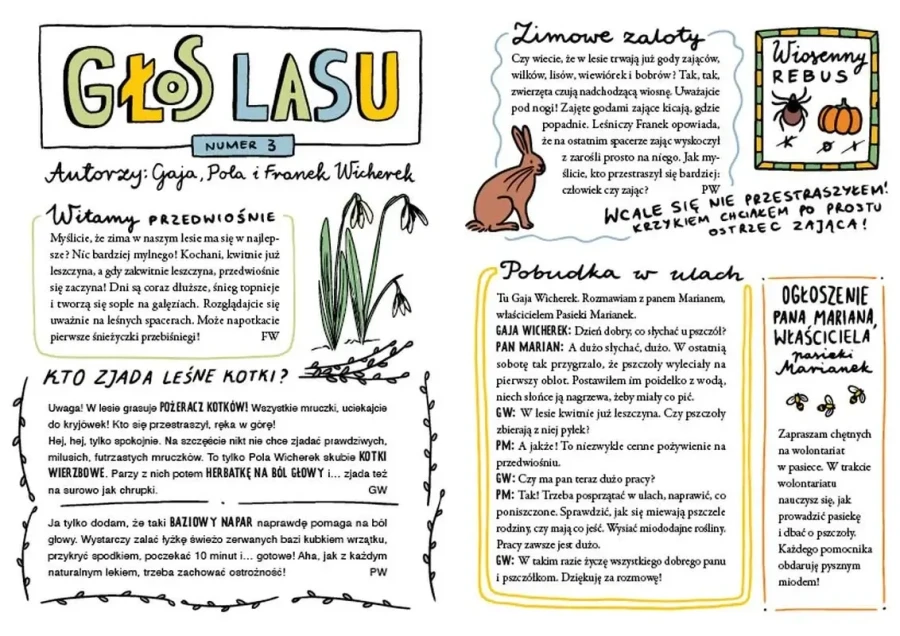 GŁOS LASU
NUMER 3
Autorzy: Gaja, Pola i Franek Wicherek
Witamy PRZEDWIOŚNIE
Myślicie, że zima w naszym lesie ma się w najlep-
sze? Nic bardziej mylnego! Kochani, kwitnie już
leszczyna, a gdy zakwitnie leszczyna, przedwiośnie
się zaczyna! Dni są coraz dłuższe, śnieg topnieje
i tworzą się sople na gałęziach. Rozglądajcie się
uważnie na leśnych spacerach. Może napotkacie
pierwsze śnieżyczki przebiśniegi! FW
KTO ZJADA LEŚNE KOTKI?
Uwaga! W lesie grasuje POŻERACZ KOTKÓW! Wszystkie mruczki, uciekajcie
do kryjówek! Kto się przestraszył, ręka w górę!
Hej, hej, tylko spokojnie. Na szczęście nikt nie chce zjadać prawdziwych,
milusich, futrzastych mruczków. To tylko Pola Wicherek skubie KOTKI
WIERZBOWE. Parzy z nich potem HERBATKĘ NA BÓL GŁOWY i... zjada też
na surowo jak chrupki. GW
Ja tylko dodam, że taki BAZIOWY NAPAR naprawdę pomaga na ból
głowy. Wystarczy zalać łyżkę świeżo zerwanych bazi kubkiem wrzątku,
przykryć spodkiem, poczekać 10 minut i... gotowe! Aha, jak z każdym
naturalnym lekiem, trzeba zachować ostrożność! PW
Zimowe zaloty
Czy wiecie, że w lesie trwają już gody zajęcy,
wilków, lisów, wiewiórek i bobrów? Tak, tak,
zwierzęta czują nadchodzącą wiosnę. Uważajcie
pod nogi! Zajęte godami zające kicają, gdzie
popadnie. Leśniczy Franek opowiada,
że na ostatnim spacerze zając wyskoczył
z zarośli prosto na niego. Jak my-
ślicie, kto przestraszył się bardziej:
człowiek czy zając? PW
WCALE SIĘ NIE PRZESTRASZYŁEM!
KRZYKIEM CHCIAŁEM PO PROSTU
OSTRZEC ZAJĄCA!
Wiosenny
REBUS
Pobudka w ulach
Tu Gaja Wicherek. Rozmawiam z panem Marianem,
właścicielem Pasieki Marianek.
GAJA WICHEREK: Dzień dobry, co słychać u pszczół?
PAN MARIAN: A dużo słychać, dużo. W ostatnią
sobotę tak przygrzało, że pszczoły wyleciały na
pierwszy oblot. Postawiłem im poidełko z wodą,
niech słońce ją nagrzewa, żeby miały co pić.
GW: W lesie kwitnie już leszczyna. Czy pszczoły
zbierają z niej pyłek?
PM: A jakże! To niezwykle cenne pożywienie na
przedwiośniu.
GW: Czy ma pan teraz dużo pracy?
PM: Tak! Trzeba posprzątać w ulach, naprawić, co
poniszczone. Sprawdzić, jak się miewają pszczele
rodziny, czy mają co jeść. Wysiać miododajne rośliny.
Pracy zawsze jest dużo.
GW: W takim razie życzę wszystkiego dobrego panu
i pszczółkom. Dziękuję za rozmowę!
OGŁOSZENIE
PANA MARIANA,
WŁAŚCICIELA
pasieki
Marianek
Zapraszam chętnych
na wolontariat
w pasiece. W trakcie
wolontariatu
nauczysz się, jak
prowadzić pasiekę
i dbać o pszczoły.
Każdego pomocnika
obdaruję pysznym
miodem!